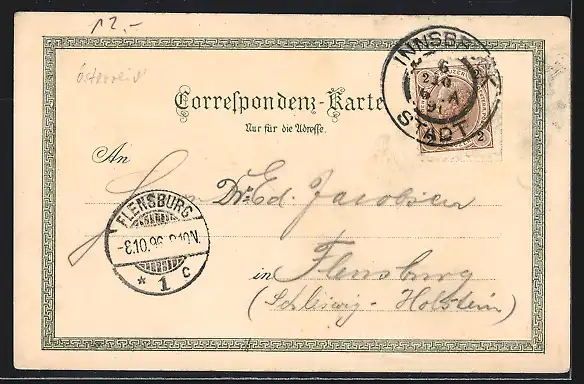 12.-
Österreich
INNSBRUCK
STADT
2 2
Correspondenz-Karte
Nur für die Adresse.
An
Herrn Dr. Ed. Jacobsen
FLENSBURG
-8.10.96. 8-10N.
* 1 c
in Flensburg
(Schleswig-Holstein)